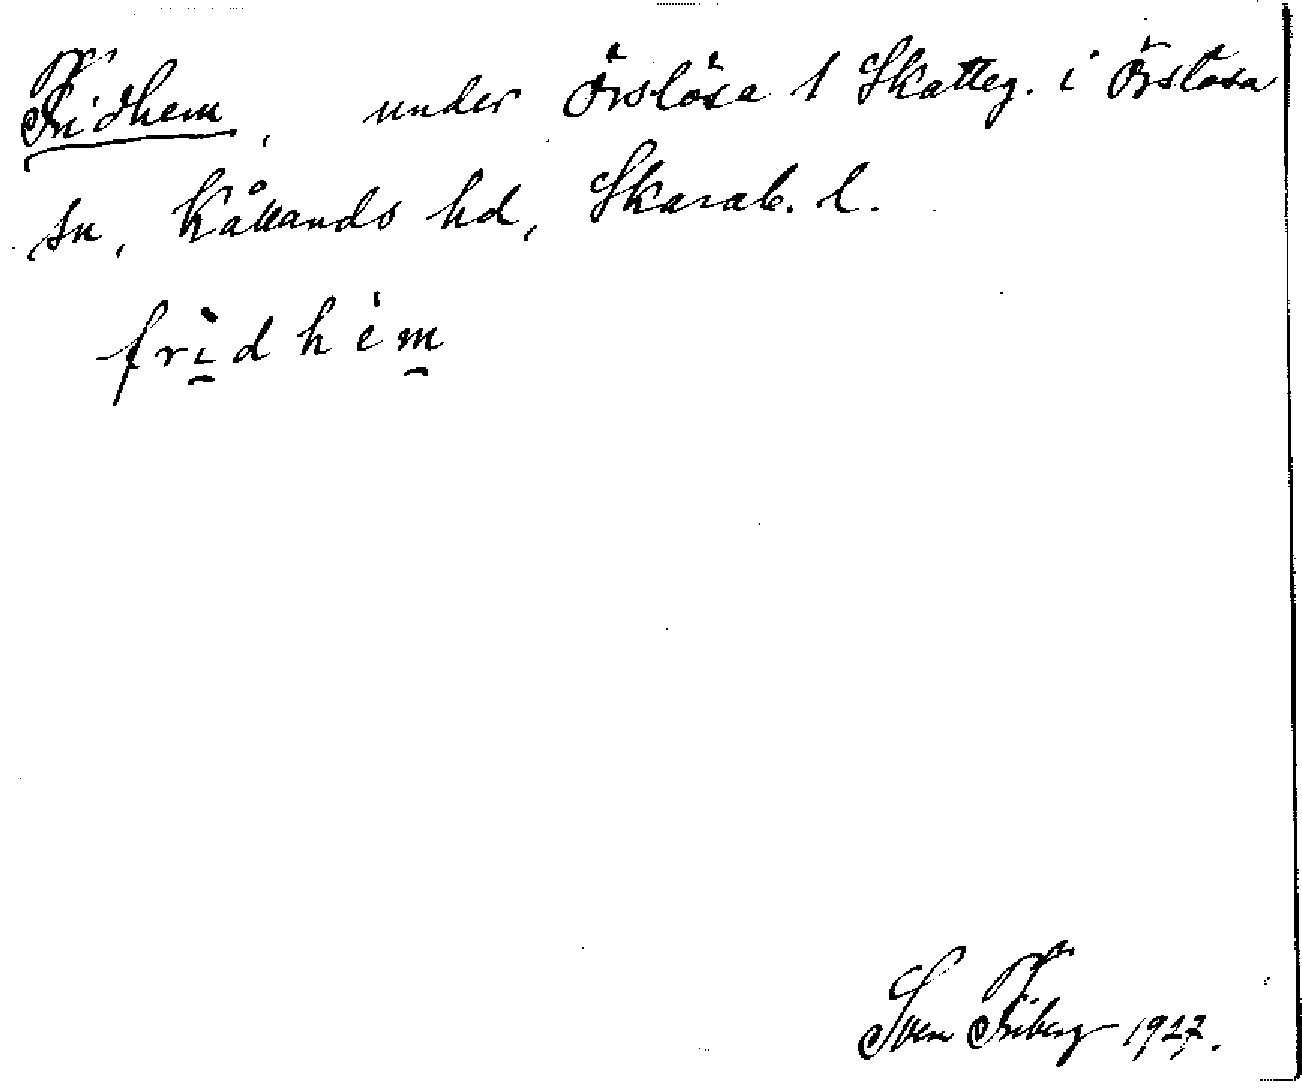 Fridhem, under Örslösa 1 Skatteg. i Örslösa
sn, Kållands hd, Skarab. l.
frìdhém
Sven Friberg 1927.